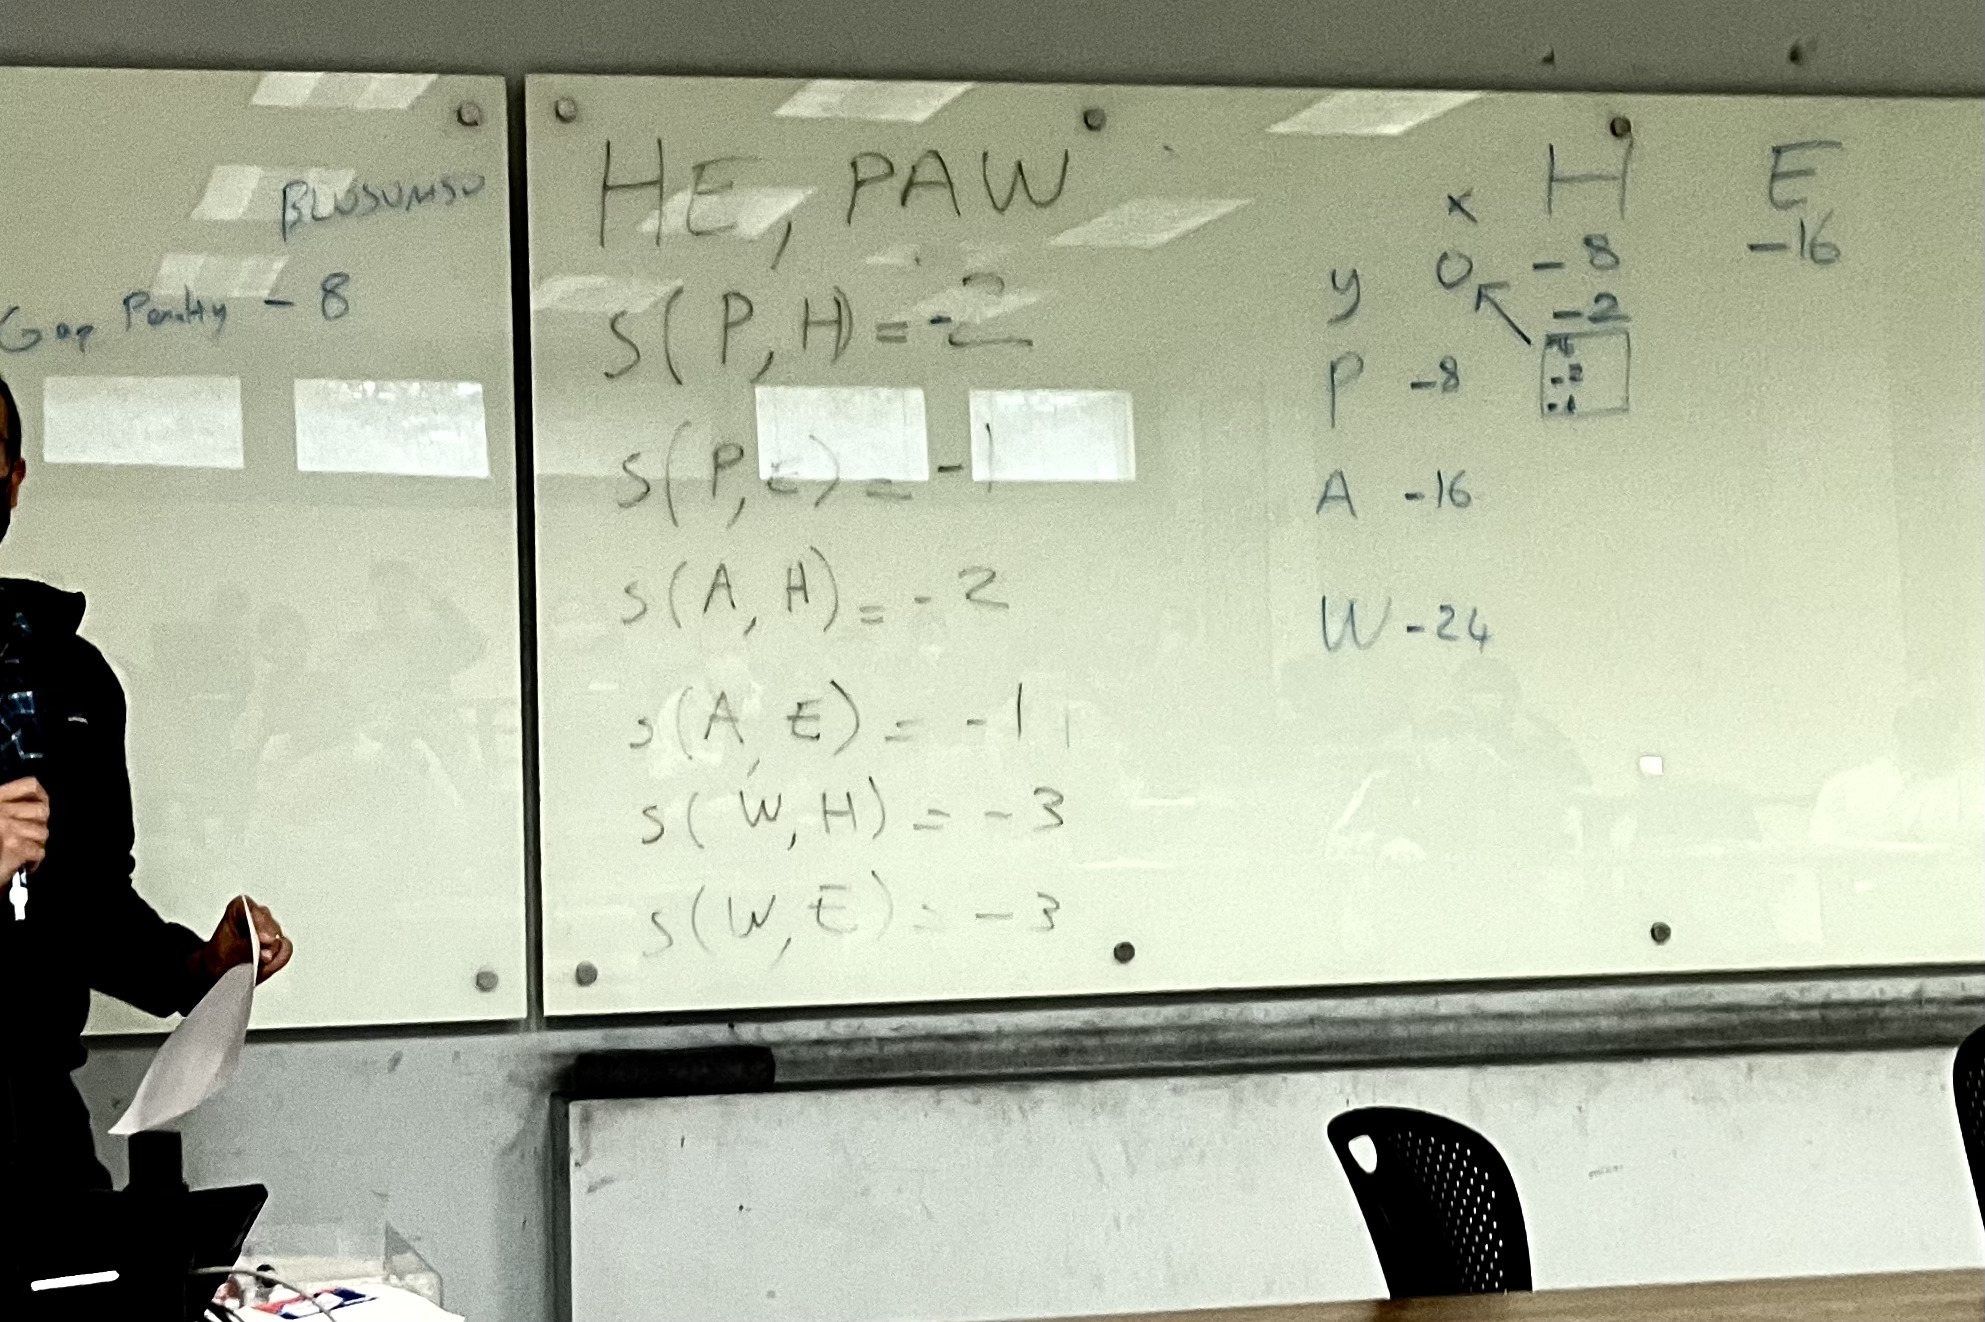 BLOSUM50
Gap Penalty - 8
HE, PAW
s(P, H) = -2
s(P, E) = -1
s(A, H) = - 2
s(A, E) = - 1
s(W, H) = - 3
s(W, E) = - 3
x H E
y 0 - 8 -16
-2
P -8
-2
A -16
W -24